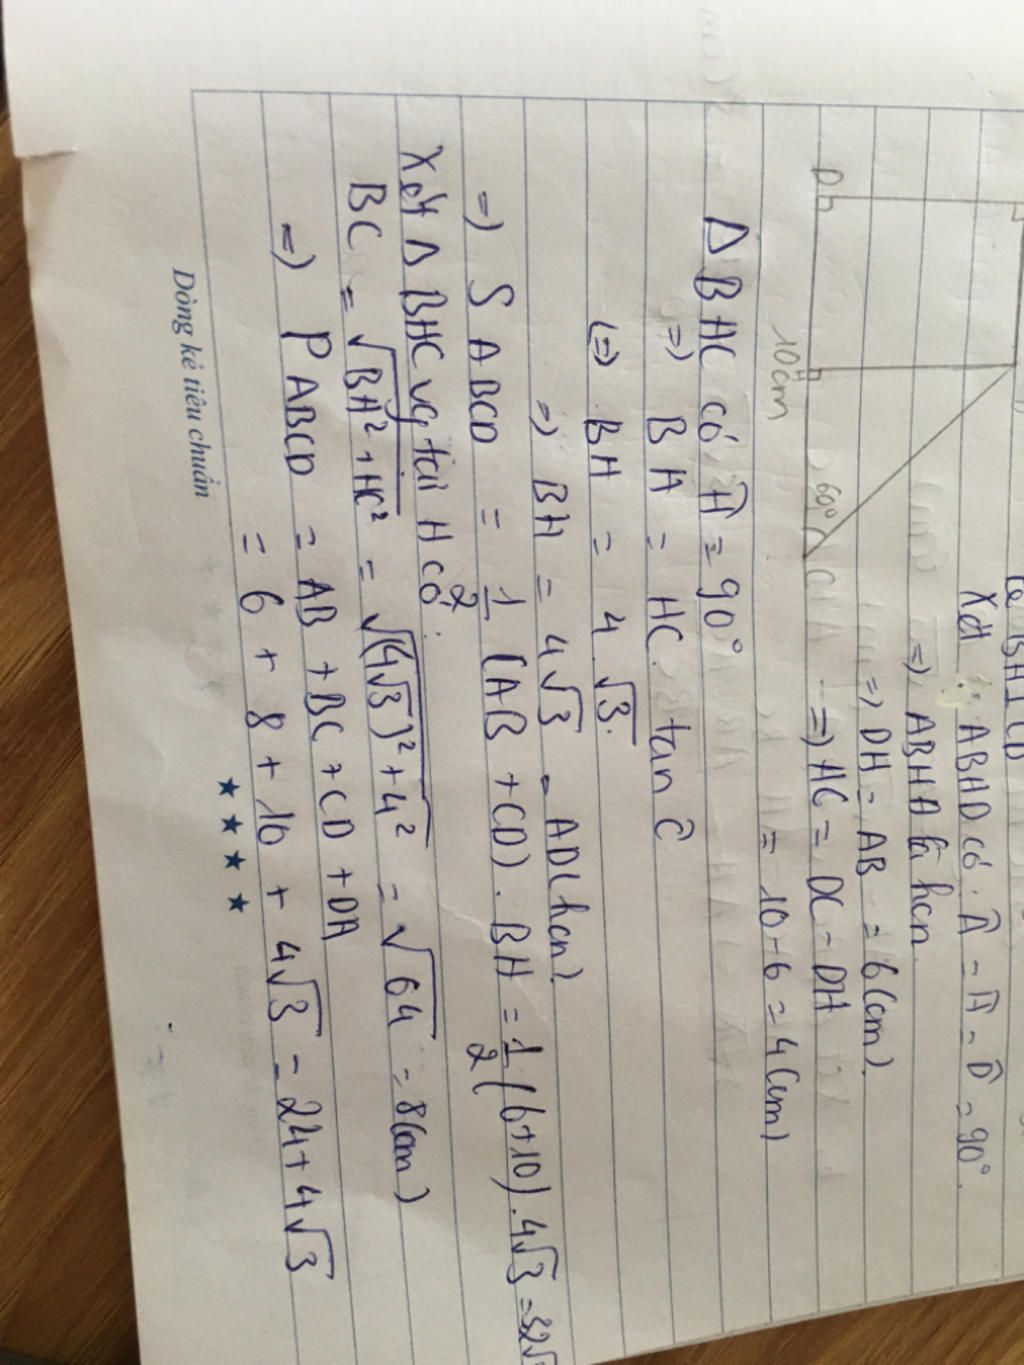 Xét ABHD có: Â = Ĥ = D̂ = 90°.
=> ABHD là hcn
=> DH = AB = 6(cm).
=> HC = DC - DH
= 10 - 6 = 4(cm)
D
H
10cm
60°
C
Δ BHC có Ĥ = 90°
=> BH = HC. tan Ĉ
(=) BH = 4 √3.
=> BH = 4√3 = AD(hcn)
=> S ABCD = 1/2 (AB + CD). BH = 1/2 (6+10). 4√3 = 32√3
Xét Δ BHC vg tại H có:
BC = √BH² + HC² = √(4√3)² + 4² = √64 = 8(cm)
=> P ABCD = AB + BC + CD + DA
= 6 + 8 + 10 + 4√3 = 24 + 4√3
Dòng kẻ tiêu chuẩn